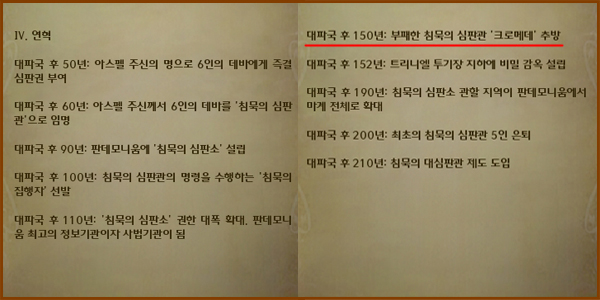 IV. 연혁
대파국 후 50년: 아스펠 주신의 명으로 6인의 데바에게 즉결
심판권 부여
대파국 후 60년: 아스펠 주신께서 6인의 데바를 '침묵의 심판
관'으로 임명
대파국 후 90년: 판데모니움에 '침묵의 심판소' 설립
대파국 후 100년: 침묵의 심판관의 명령을 수행하는 '침묵의
집행자' 선발
대파국 후 110년: '침묵의 심판소' 권한 대폭 확대. 판데모니
움 최고의 정보기관이자 사법기관이 됨
대파국 후 150년: 부패한 침묵의 심판관 '크로메데' 추방
대파국 후 152년: 트리니엘 투기장 지하에 비밀 감옥 설립
대파국 후 190년: 침묵의 심판소 관할 지역이 판데모니움에서
마계 전체로 확대
대파국 후 200년: 최초의 침묵의 심판관 5인 은퇴
대파국 후 210년: 침묵의 대심판관 제도 도입